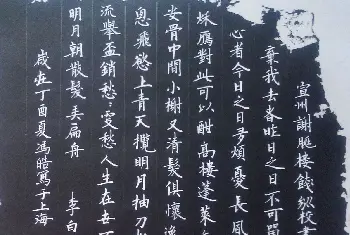 宣州謝朓樓餞叔校書
棄我去者昨日之日不可留
心者今日之日多煩憂長風
秋鴈對此可以酣高樓蓬萊
安骨中間小謝又清髮俱懷逸
思飛慾上青天攬明月抽刀
流舉盃銷愁〻更愁人生在世不
明月朝散髮弄扁舟 李白
歲在丁酉夏馮皓寫于上海